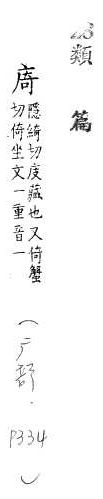 類篇
隱綺切度藏也又倚蟹
切倚坐文一重音一
（广部．P334）